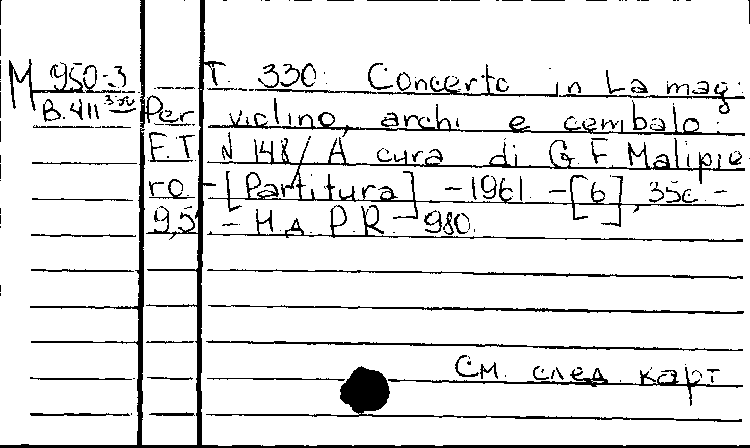 М 950-3 Т. 330: Concerto in La mag:
В.411 Per violino, archi e cembalo:
F.T. N 148/ A cura di G F Malipie
ro -[Partitura] -1961 -[6], 35c -
9,5 - Н.Д. P.R. - 980.
См. след. карт